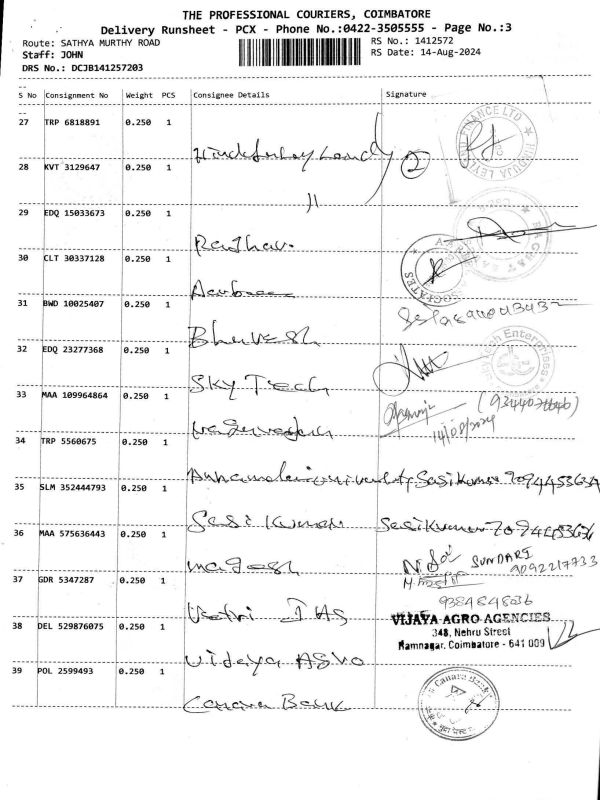 THE PROFESSIONAL COURIERS, COIMBATORE
Delivery Runsheet - PCX - Phone No.:0422-3505555 - Page No.:3
Route: SATHYA MURTHY ROAD
RS No.: 1412572
Staff: JOHN
RS Date: 14-Aug-2024
DRS No.: DCJB141257203
S No Consignment No Weight PCS Consignee Details Signature
27 TRP 6818891 0.250 1
28 KVT 3129647 0.250 1
29 EDQ 15033673 0.250 1
Raghav.
30 CLT 30337128 0.250 1
31 BWD 10025407 0.250 1
Bhuvesh
32 EDQ 23277368 0.250 1
Sky Tech
33 MAA 109964864 0.250 1
14/08/2024
34 TRP 5560675 0.250 1
Annamalai university Sasikumar
35 SLM 352444793 0.250 1
Sasi Kumar Sasikumar
36 MAA 575636443 0.250 1
SUNDARI
9092217733
magesh
37 GDR 5347287 0.250 1
9384848036
Vetri IAS
VIJAYA AGRO AGENCIES
348, Nehru Street
Ramnagar, Coimbatore - 641 009
38 DEL 529876075 0.250 1
Vijaya Agro
39 POL 2599493 0.250 1
Canara Bank
Canara Bank